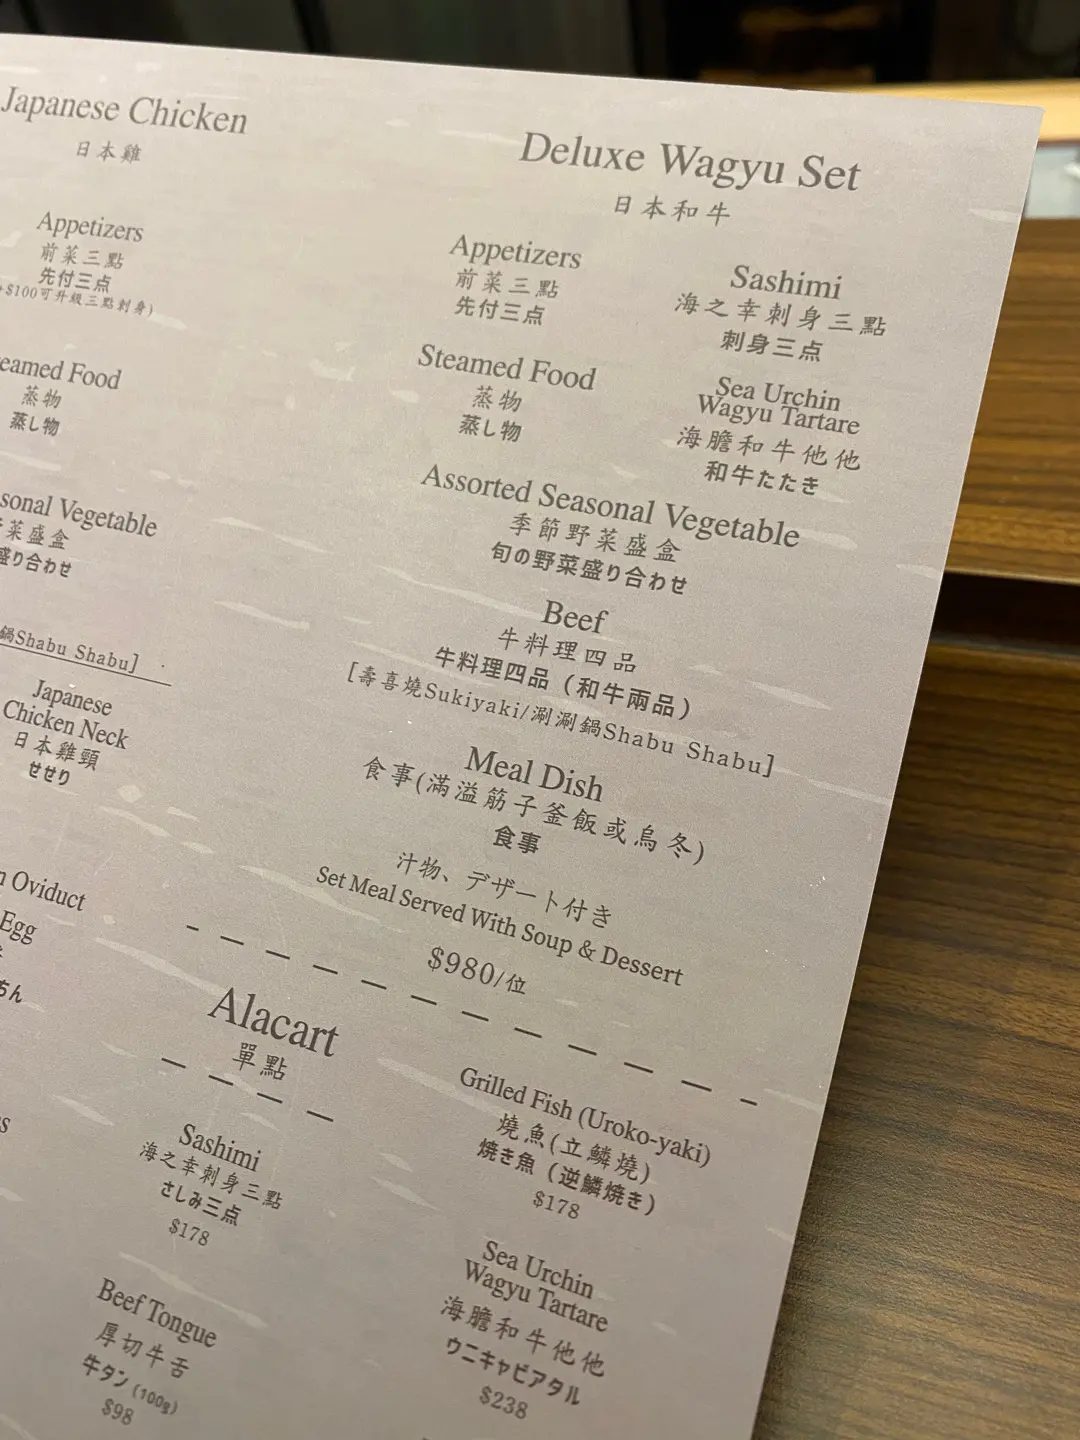 Japanese Chicken
日本雞
Appetizers
前菜三點
先付三点
$100可升級三點刺身)
eamed Food
蒸物
蒸し物
sonal Vegetable
菜盛盒
盛り合わせ
鍋Shabu Shabu]
Japanese
Chicken Neck
日本雞頸
せせり
Oviduct
Egg
ちん
Deluxe Wagyu Set
日本和牛
Appetizers
前菜三點
先付三点
Sashimi
海之幸刺身三點
刺身三点
Steamed Food
蒸物
蒸し物
Sea Urchin
Wagyu Tartare
海膽和牛他他
和牛たたき
Assorted Seasonal Vegetable
季節野菜盛盒
旬の野菜盛り合わせ
Beef
牛料理四品
牛料理四品（和牛兩品）
[壽喜燒Sukiyaki/涮涮鍋Shabu Shabu]
Meal Dish
食事(滿溢筋子釜飯或烏冬)
食事
汁物、デザート付き
Set Meal Served With Soup & Dessert
$980/位
Alacart
單點
Sashimi
海之幸刺身三點
さしみ三点
$178
Beef Tongue
厚切牛舌
牛タン (100g)
$98
Grilled Fish (Uroko-yaki)
燒魚(立鱗燒)
焼き魚（逆鱗焼き）
$178
Sea Urchin
Wagyu Tartare
海膽和牛他他
ウニキャビアタル
$238